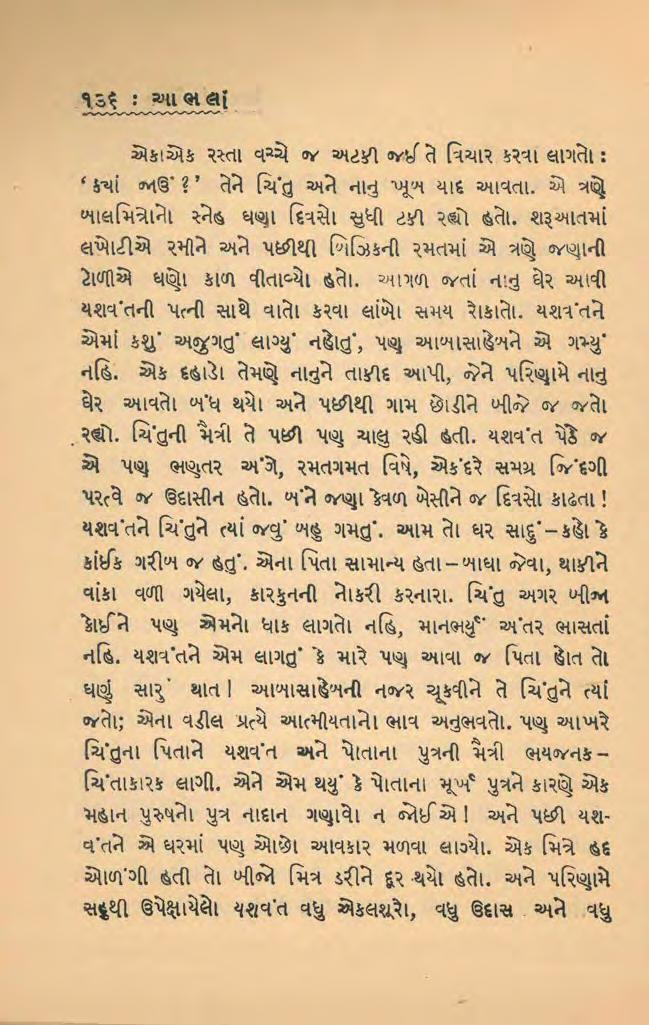 ૧૩૬ : આભલાં
એકાએક રસ્તા વચ્ચે જ અટકી જઈ તે વિચાર કરવા લાગતો :
‘ક્યાં જાઉં ?’ તેને ચિંતુ અને નાનુ ખૂબ યાદ આવતા. એ ત્રણે
બાલમિત્રોનો સ્નેહ ઘણા દિવસો સુધી ટકી રહ્યો હતો. શરૂઆતમાં
લખોટીએ રમીને અને પછીથી બિઝિકની રમતમાં એ ત્રણે જણાની
ટોળીએ ઘણો કાળ વીતાવ્યો હતો. આગળ જતાં નાનુ ઘેર આવી
યશવંતની પત્ની સાથે વાતો કરવા લાંબો સમય રોકાતો. યશવંતને
એમાં કશું અજુગતું લાગ્યું નહોતું, પણ આબાસાહેબને એ ગમ્યું
નહિ. એક દહાડો તેમણે નાનુને તાકીદ આપી, જેને પરિણામે નાનુ
ઘેર આવતો બંધ થયો અને પછીથી ગામ છોડીને બીજે જ જતો
રહ્યો. ચિંતુની મૈત્રી તે પછી પણ ચાલુ રહી હતી. યશવંત પેઠે જ
એ પણ ભણતર અંગે, રમતગમત વિષે, એકંદરે સમગ્ર જિંદગી
પરત્વે જ ઉદાસીન હતો. બંને જણા કેવળ બેસીને જ દિવસો કાઢતા !
યશવંતને ચિંતુને ત્યાં જવું બહુ ગમતું. આમ તો ઘર સાદું–કહો કે
કાંઈક ગરીબ જ હતું. એના પિતા સામાન્ય હતા–બાઘા જેવા, થાકીને
વાંકા વળી ગયેલા, કારકુનની નોકરી કરનારા. ચિંતુ અગર બીજા
કોઈને પણ એમનો ધાક લાગતો નહિ, માનભર્યું અંતર ભાસતાં
નહિ. યશવંતને એમ લાગતું કે મારે પણ આવા જ પિતા હોત તો
ઘણું સારું થાત ! આબાસાહેબની નજર ચૂકવીને તે ચિંતુને ત્યાં
જતો; એના વડીલ પ્રત્યે આત્મીયતાનો ભાવ અનુભવતો. પણ આખરે
ચિંતુના પિતાને યશવંત અને પોતાના પુત્રની મૈત્રી ભયજનક–
ચિંતાકારક લાગી. એને એમ થયું કે પોતાના મૂર્ખ પુત્રને કારણે એક
મહાન પુરુષનો પુત્ર નાદાન ગણાવો ન જોઈએ ! અને પછી યશ-
વંતને એ ઘરમાં પણ ઓછો આવકાર મળવા લાગ્યો. એક મિત્રે હદ
ઓળંગી હતી તો બીજો મિત્ર ડરીને દૂર થયો હતો. અને પરિણામે
સહુથી ઉપેક્ષાયેલો યશવંત વધુ એકલશૂરો, વધુ ઉદાસ અને વધુ